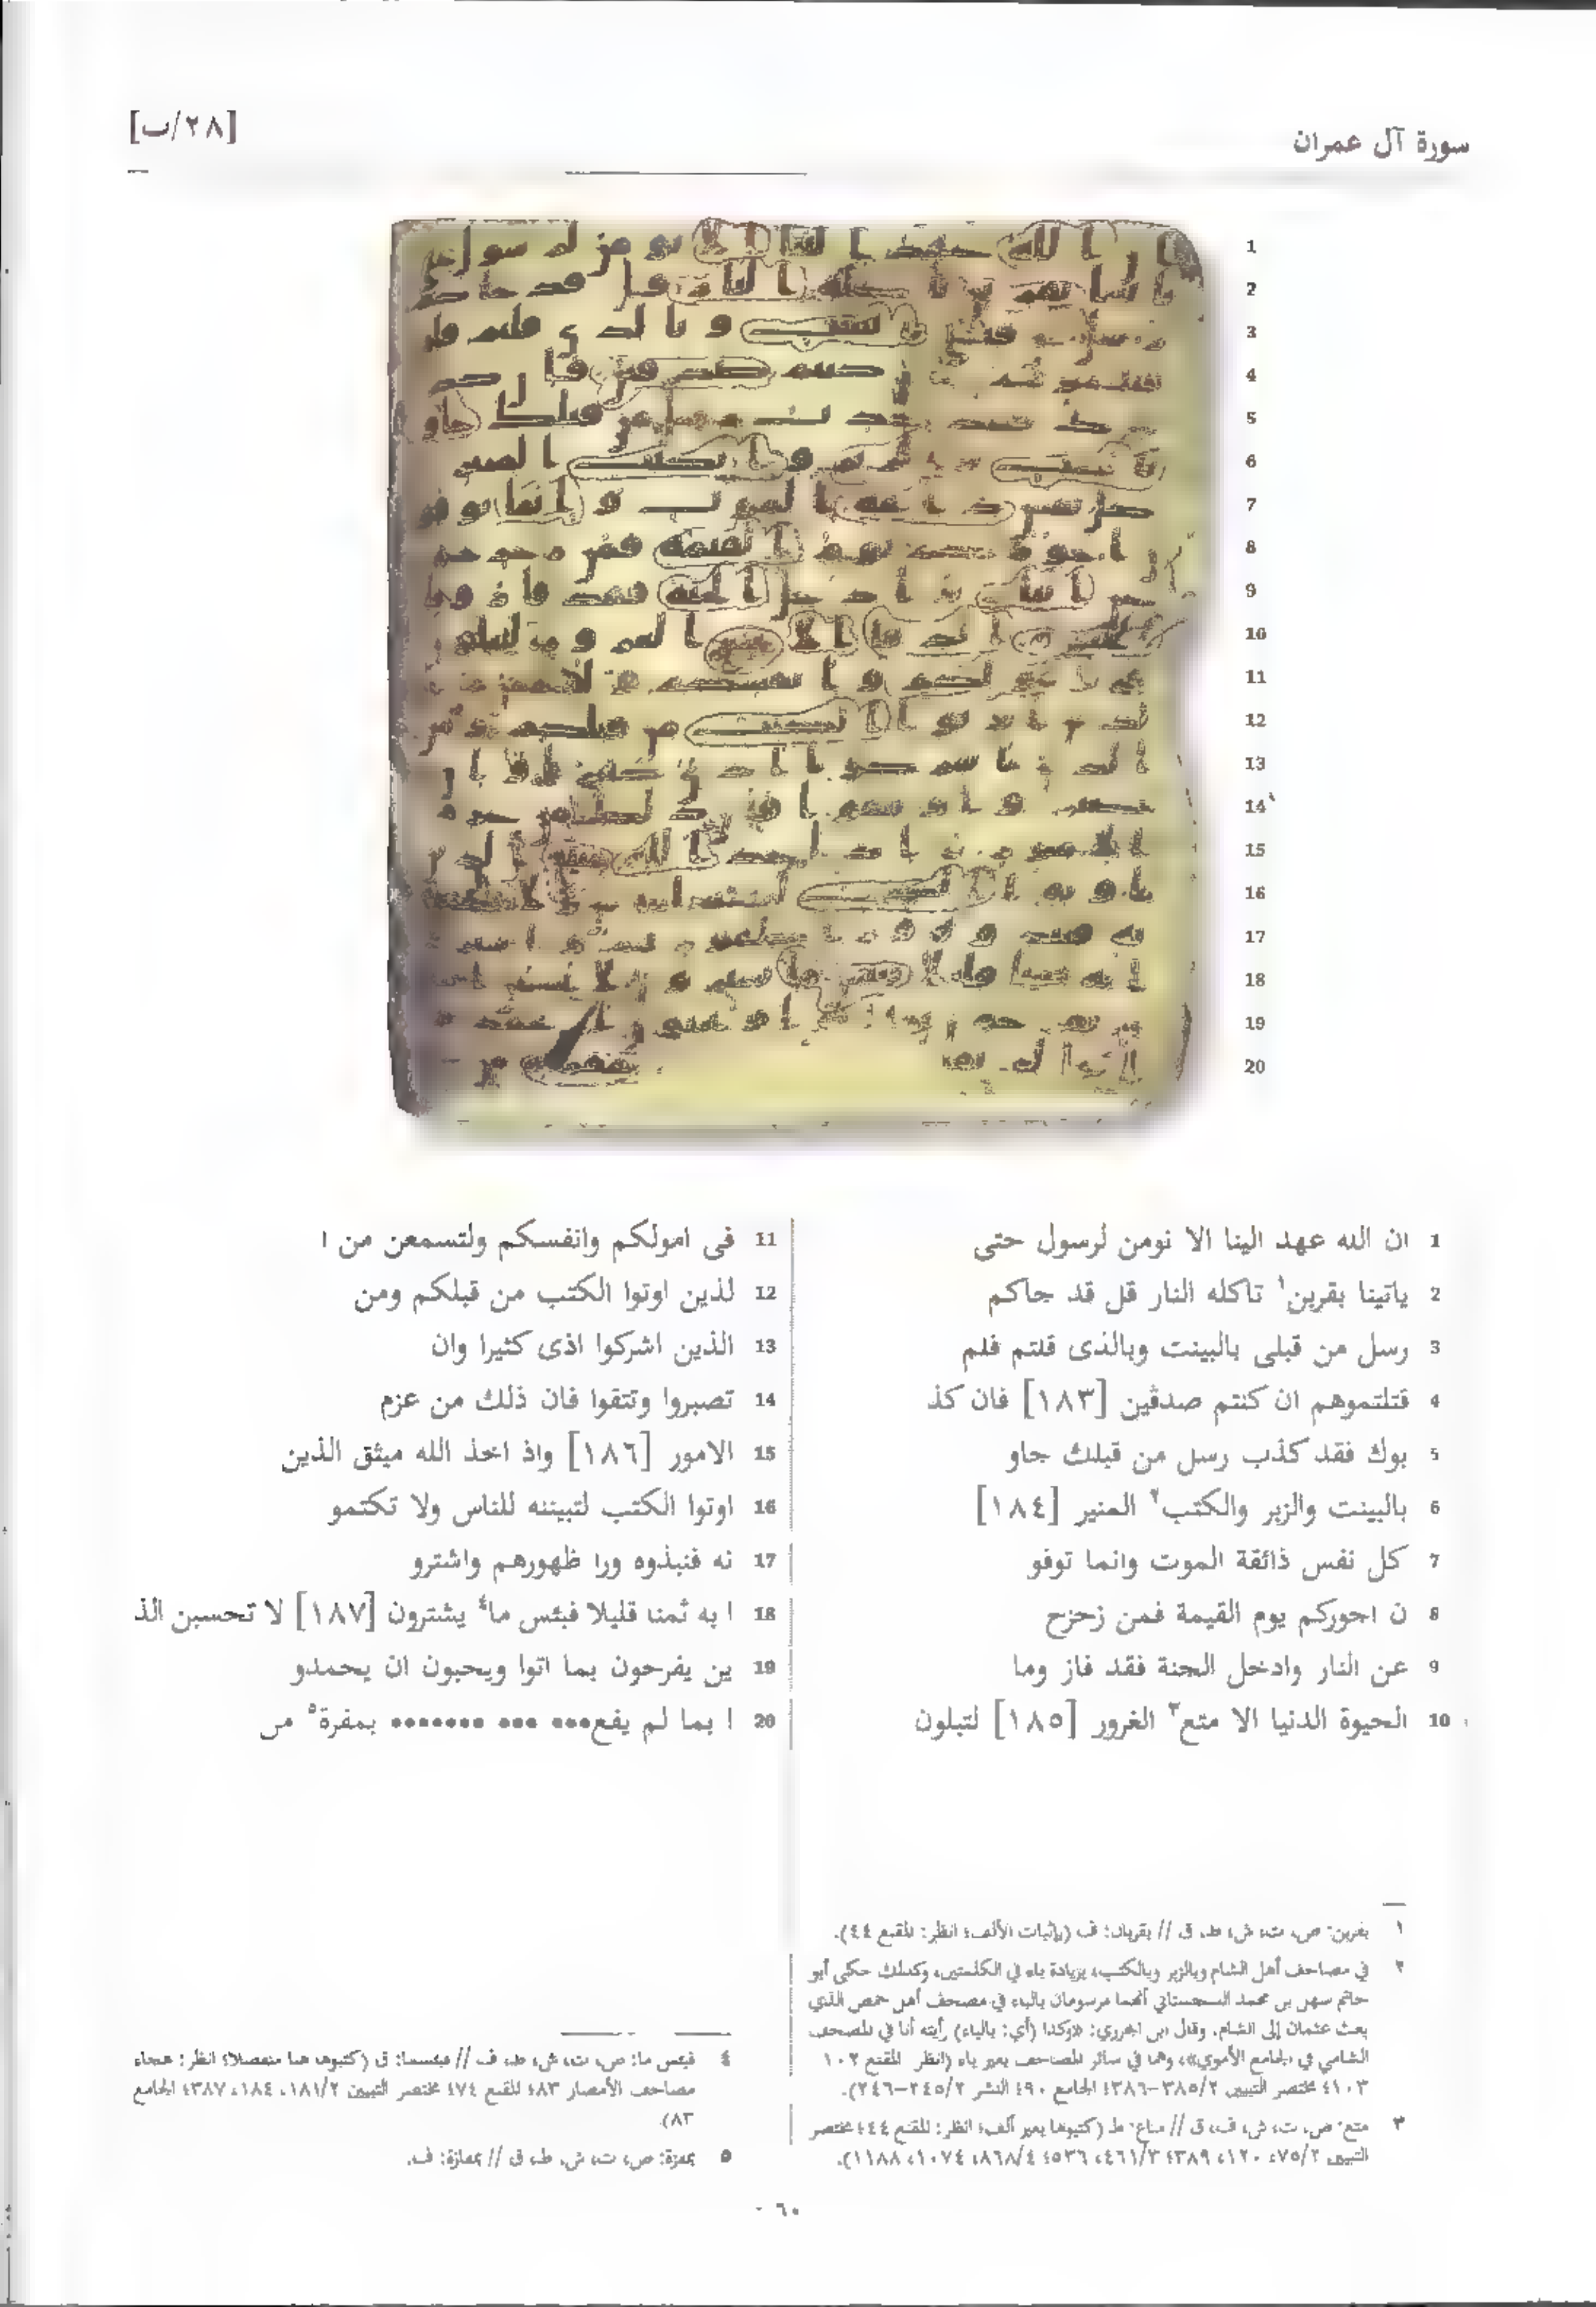 سورة آل عمران
[٢٨/ب]
1 ان الله عهد الينا الا نومن لرسول حتى
2 ياتينا بقربن١ تاكله النار قل قد جاكم
3 رسل من قبلى بالبينت وبالذى قلتم فلم
4 قتلتموهم ان كنتم صدقين [١٨٣] فان كذ
5 بوك فقد كذب رسل من قبلك جاو
6 بالبينت والزبر والكتب٢ المنير [١٨٤]
7 كل نفس ذائقة الموت وانما توفو
8 ن اجوركم يوم القيمة فمن زحزح
9 عن النار وادخل الجنة فقد فاز وما
10 الحيوة الدنيا الا متع٣ الغرور [١٨٥] لتبلون
11 فى امولكم وانفسكم ولتسمعن من ا
12 لذين اوتوا الكتب من قبلكم ومن
13 الذين اشركوا اذى كثيرا وان
14 تصبروا وتتقوا فان ذلك من عزم
15 الامور [١٨٦] واذ اخذ الله ميثق الذين
16 اوتوا الكتب لتبيننه للناس ولا تكتمو
17 نه فنبذوه ورا ظهورهم واشترو
18 ا به ثمنا قليلا فبئس ما٤ يشترون [١٨٧] لا تحسبن الذ
19 ين يفرحون بما اتوا ويحبون ان يحمدو
20 ا بما لم يفع••• ••• ••••••• بمفزة٥ من
١ بقربن: ص، ت، ش، ط، ق // بقربان: ف (بإثبات الألف؛ انظر: المقنع ٤٤).
٢ في مصاحف أهل الشام وبالزبر وبالكتب، بزيادة باء في الكلمتين، وكذلك حكى أبو
حاتم سهل بن محمد السجستاني أنهما مرسومان بالباء في مصحف أهل حمص الذي
بعث عثمان إلى الشام. وقال ابن الجزري: «وكذا (أي: بالباء) رأيته أنا في المصحف
الشامي في الجامع الأموي»، وهما في سائر المصاحف بغير باء (انظر: المقنع ١٠٢،
١٠٣؛ مختصر التبيين ٣٨٥/٢-٣٨٦؛ الجامع ٩٠؛ النشر ٢٤٥/٢-٢٤٦).
٣ متع: ص، ت، ش، ف، ق // متاع: ط (كتبوها بغير ألف؛ انظر: المقنع ٤٤؛ مختصر
التبيين ٧٥/٢، ١٢٠، ٣٨٩؛ ٤٦١/٣، ٥٣٦؛ ٨٦٨/٤، ١٠٧٤، ١١٨٨).
٤ فبئس ما: ص، ت، ش، ط، ف // فبئسما: ق (كتبوها هنا منفصلا؛ انظر: هجاء
مصاحف الأمصار ٨٣؛ المقنع ٧٤؛ مختصر التبيين ١٨١/٢، ١٨٤، ٣٨٧؛ الجامع
٨٣).
٥ بمفزة: ص، ت، ش، ط، ق // بمفازة: ف.
٦٠